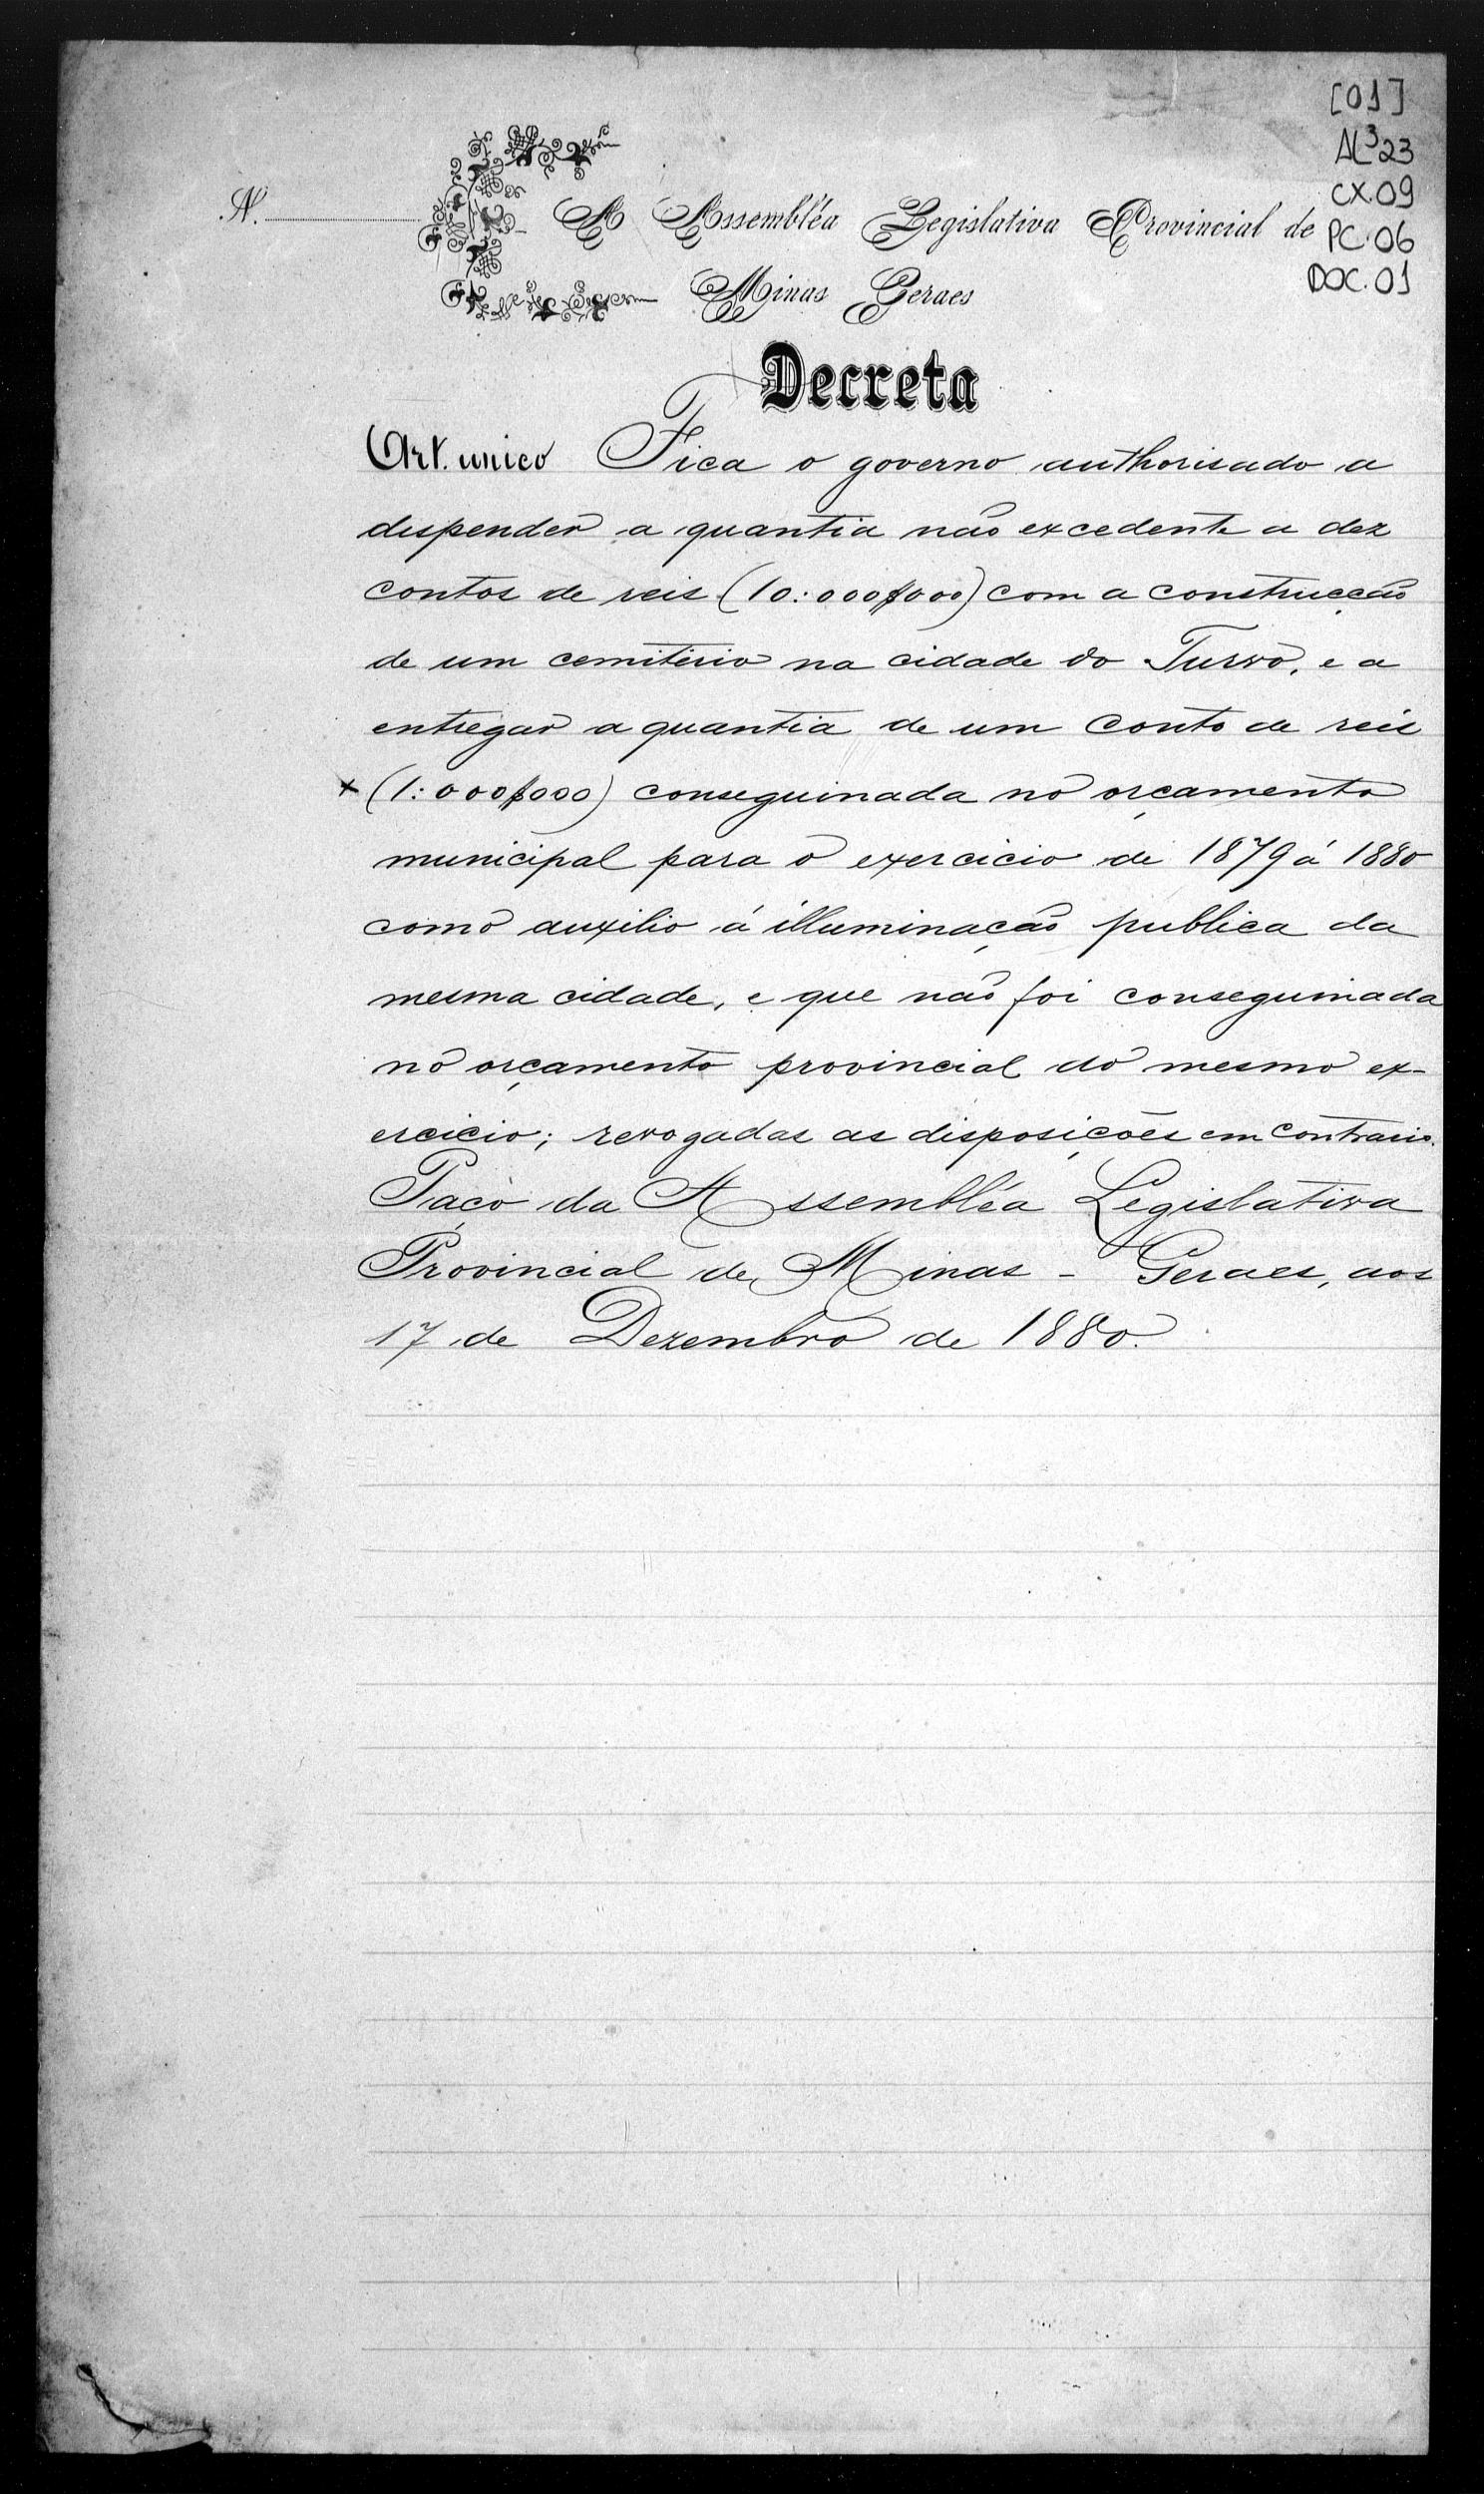 [01]
AL³23
CX.09
PC.06
DOC.01
N.
A Assembléa Legislativa Provincial de
Minas Geraes
Decreta
Art. unico Fica o governo authorisado a
dispender a quantia não excedente a dez
contos de reis (10:000$000) com a construcção
de um cemiterio na cidade do Turvo, e a
entregar a quantia de um conto de reis
x (1:000$000) conseguinada no orçamento
municipal para o exercicio de 1879 á 1880
como auxilio á illuminação publica da
mesma cidade, e que não foi conseguinada
no orçamento provincial do mesmo ex-
ercicio; revogadas as disposições em contrario.
Paço da Assembléa Legislativa
Provincial de Minas - Geraes, aos
17 de Dezembro de 1880.